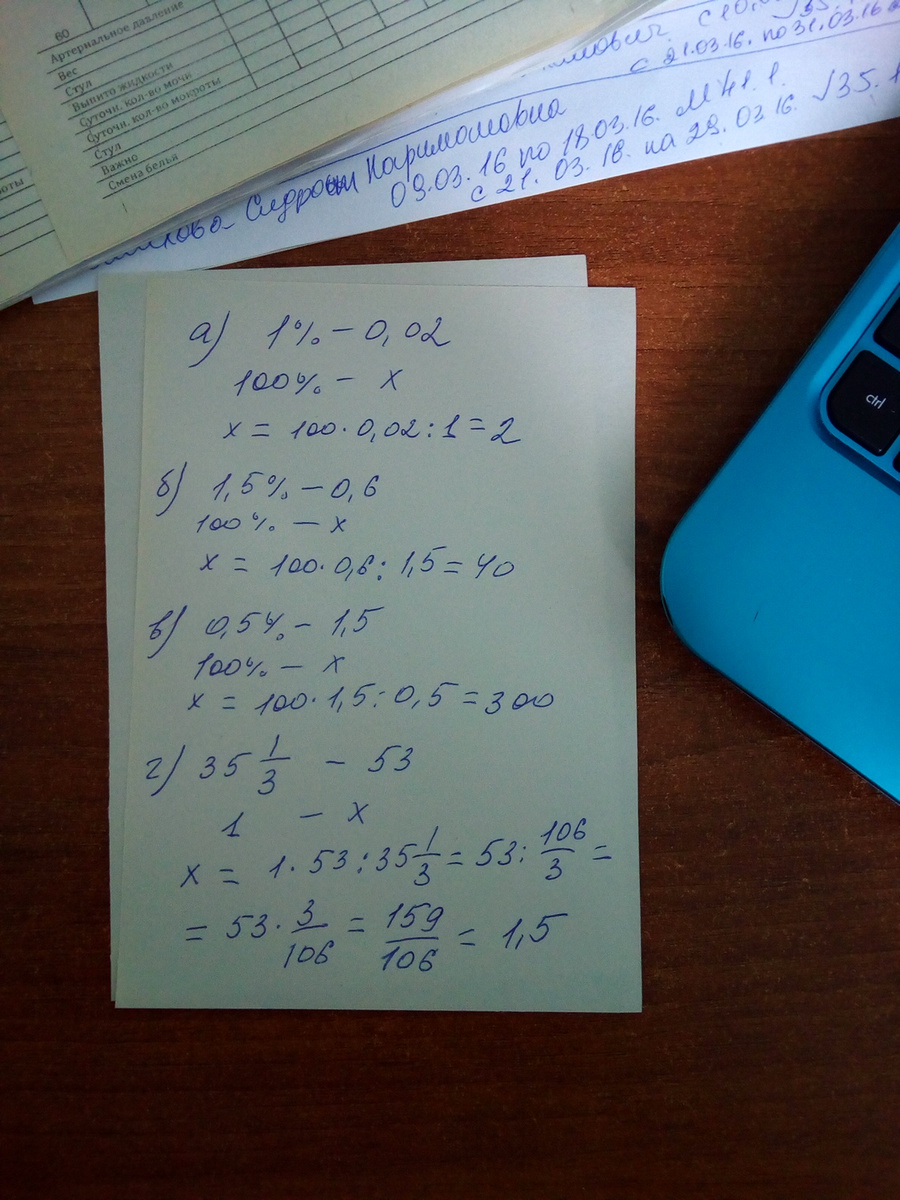 60
Артериальное давление
Вес
Стул
Выпито жидкости
Суточн. кол-во мочи
Суточн. кол-во мокроты
Стул
Важно
Смена белья
с 21.03.16. по 31.03.16
Каримовна
09.03.16 по 18.03.16. М 41.1.
с 21.03.16. по 29.03 16.
ctrl
а) 1% – 0,02
100% – x
x = 100·0,02:1=2
б) 1,5% – 0,6
100% – x
x = 100·0,6:1,5=40
в) 0,5% – 1,5
100% – x
x = 100·1,5:0,5=300
г) 35 1/3 – 53
1 – x
x = 1·53:35 1/3 = 53: 106/3 =
= 53· 3/106 = 159/106 = 1,5